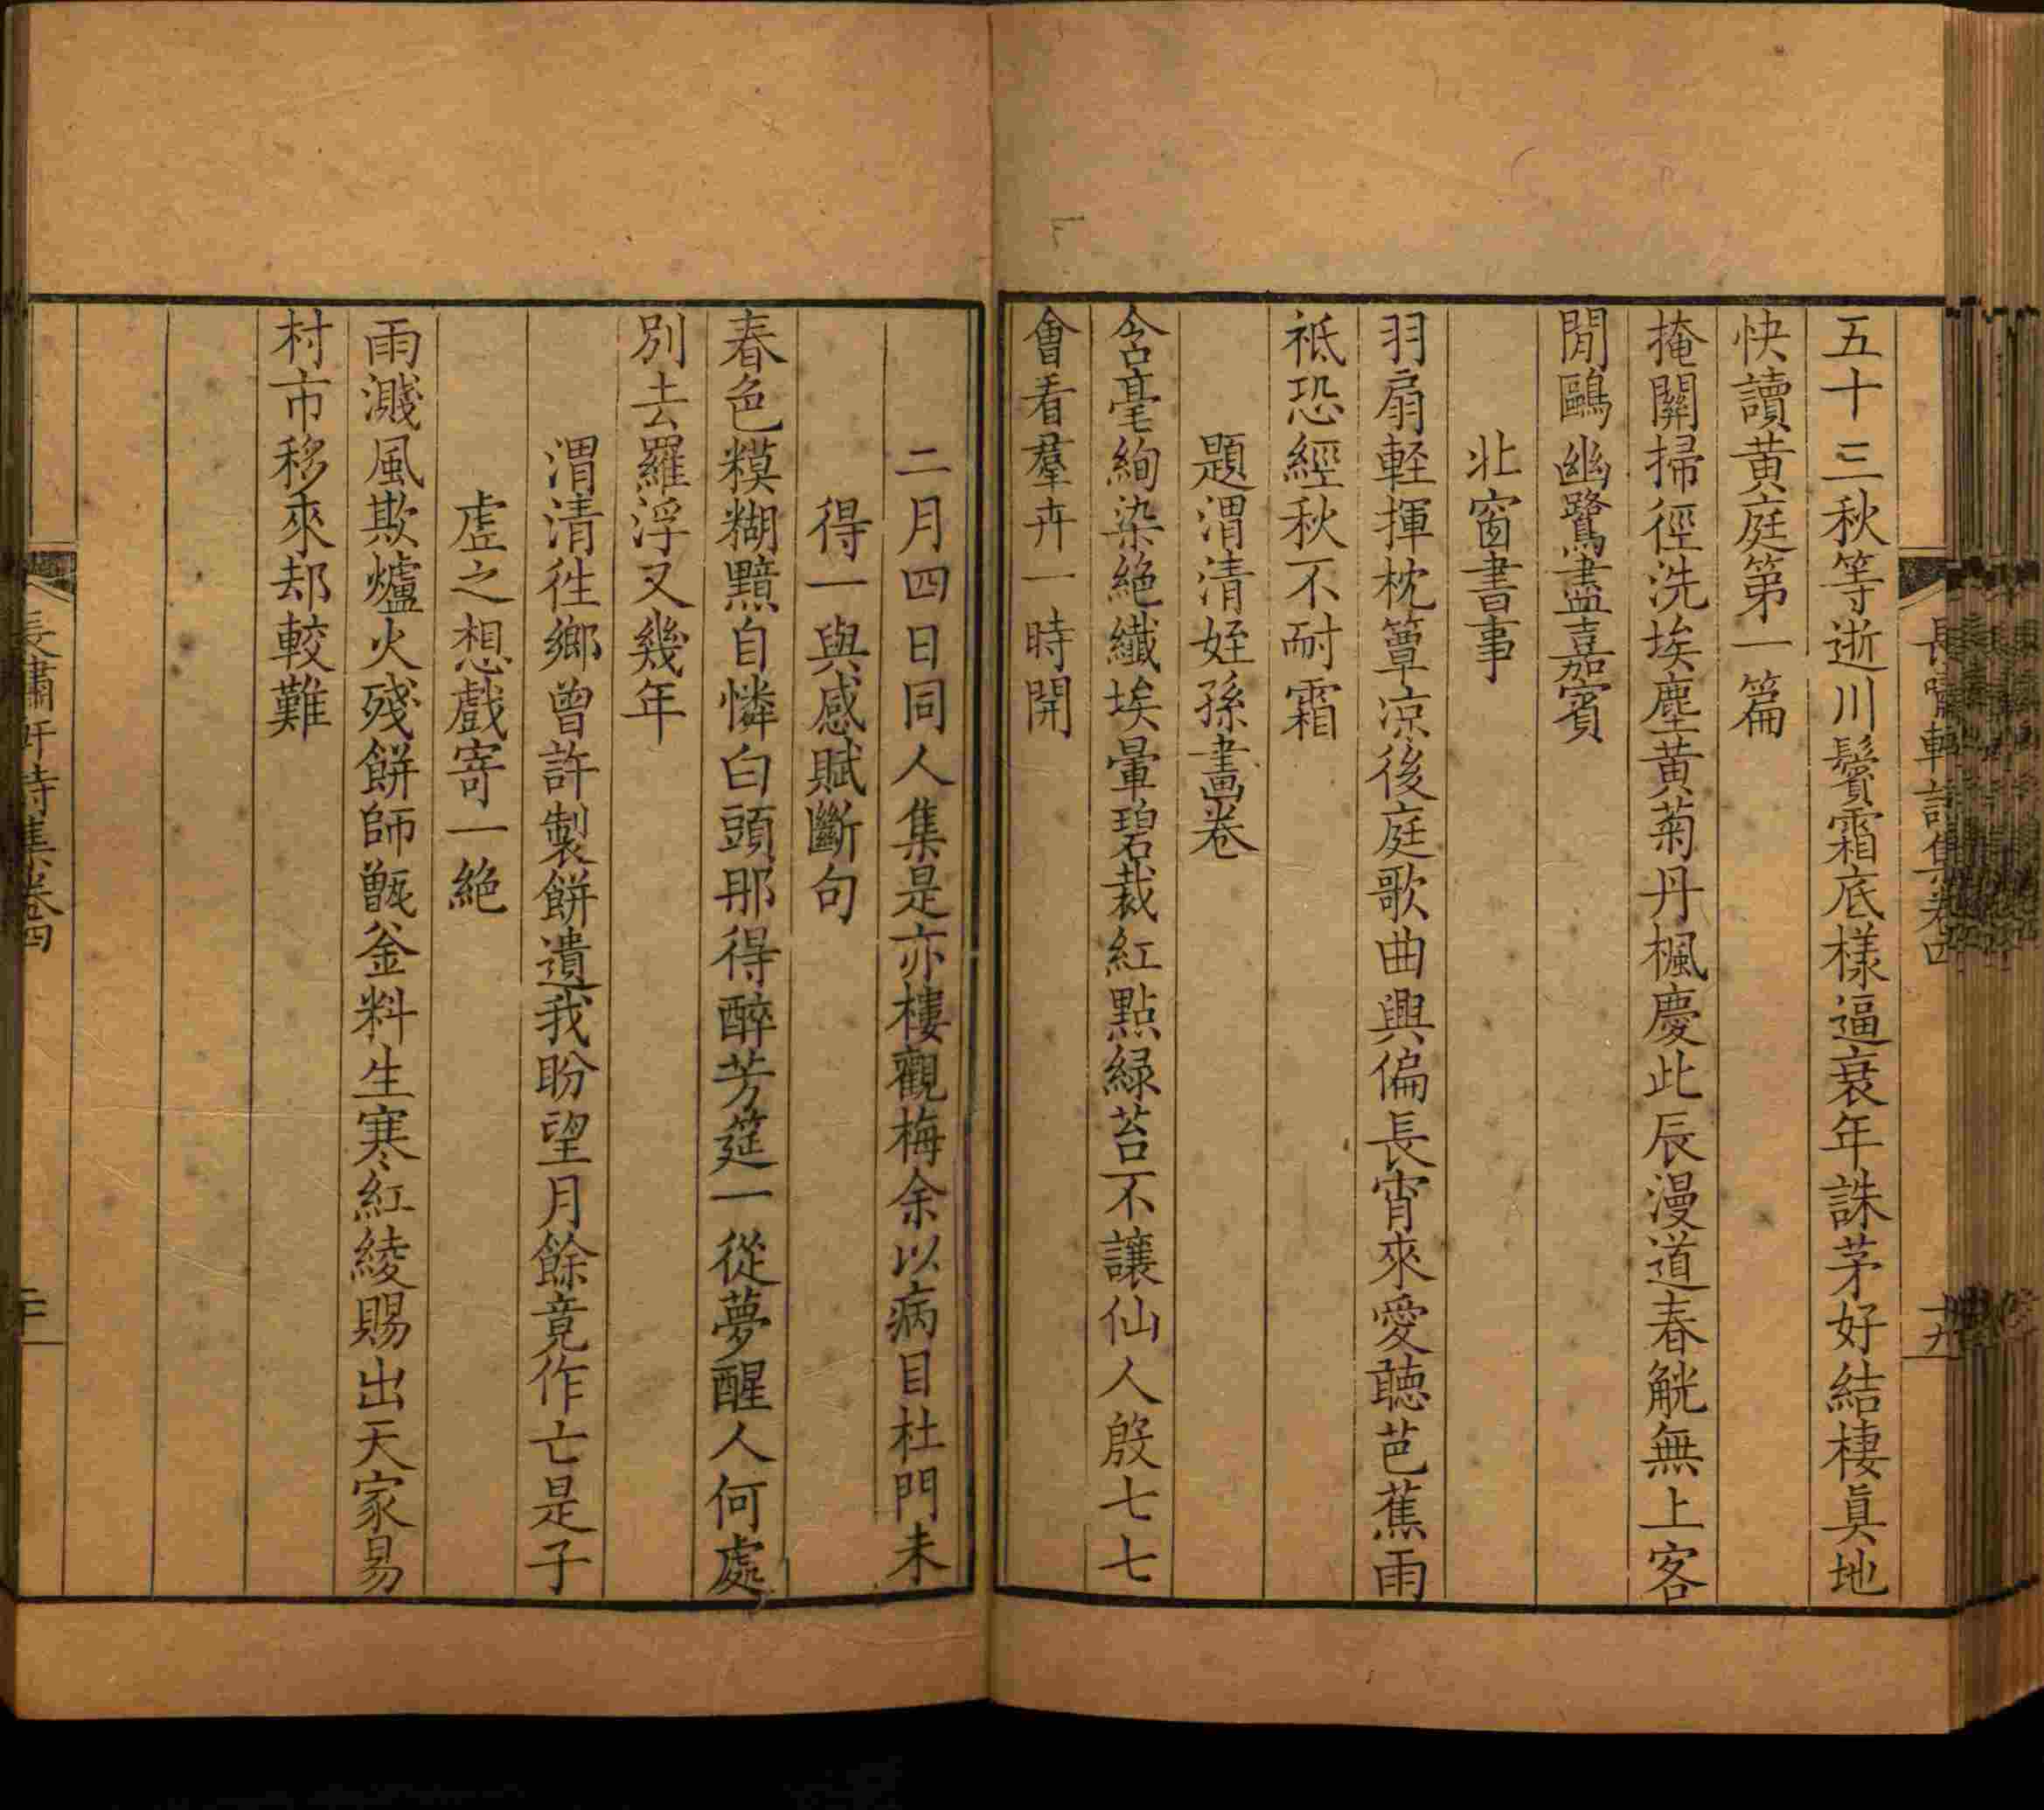 長嘯軒詩集卷四
十九
五十三秋等逝川鬢霜底樣逼衰年誅茅好結棲眞地
快讀黃庭第一篇
掩關掃徑洗埃塵黃菊丹楓慶此辰漫道春觥無上客
閒鷗幽鷺盡嘉賓
北窗書事
羽扇輕揮枕簟凉後庭歌曲興偏長宵來愛聽芭蕉雨
祗恐經秋不耐霜
題渭清姪孫畫卷
含毫絢染絶纖埃暈碧裁紅點緑苔不讓仙人殷七七
會看羣卉一時開
二月四日同人集是亦樓觀梅余以病目杜門未
得一與感賦斷句
春色糢糊黯自憐白頭那得醉芳筵一從夢醒人何處
別去羅浮又幾年
渭清徃鄉曾許製餅遺我盼望月餘竟作亡是子
虛之想戲寄一絶
雨濺風欺爐火殘餅師甑釜料生寒紅綾賜出天家易
村市移來却較難
長嘯軒詩集卷四
二十